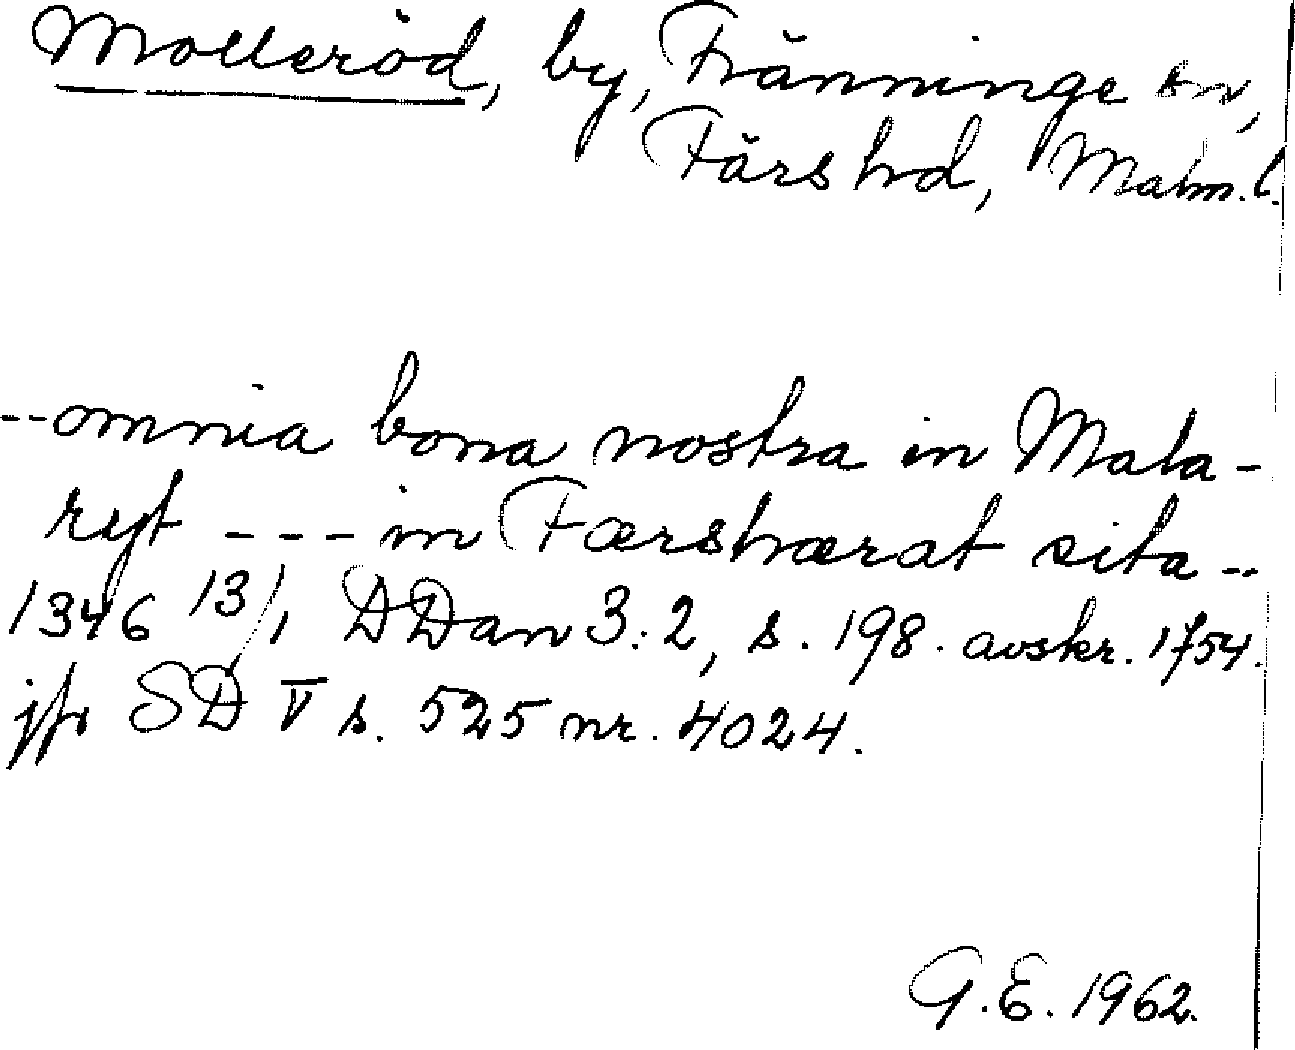 Molleröd, by, Fränninge sn,
Färs hd, Malm. l.
--omnia bona nostra in Mala-
ryt --- in Færshærat sita --
1346 13/1 DDan 3:2, s. 198. avskr. 1754.
jfr SD V s. 525 nr. 4024.
G.E. 1962.